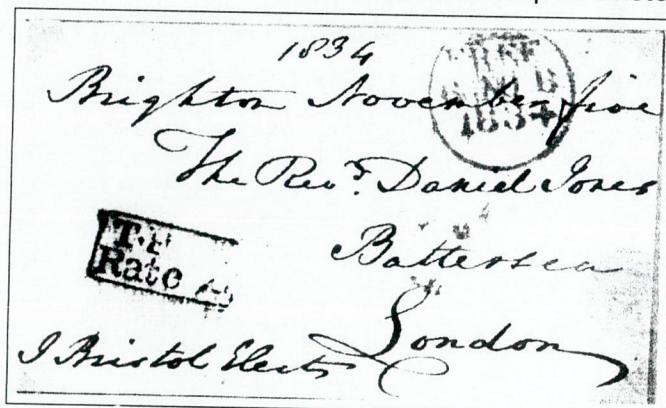 1834
FREE
1834
Brighton November five
The Revd. Daniel Jones
Battersea
T.P
Rate
London
J Bristol Elect